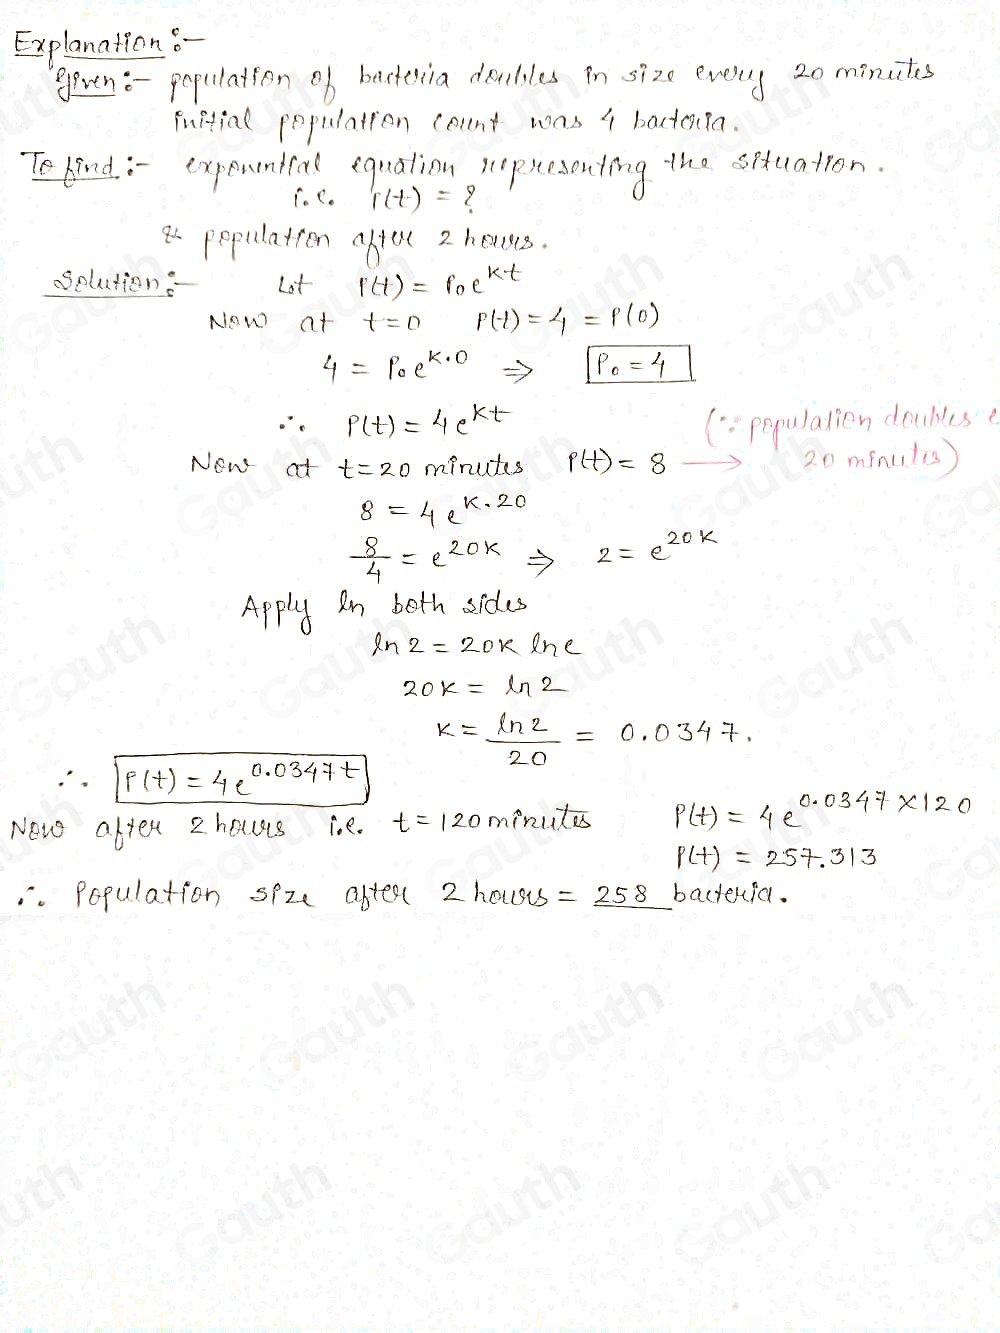 Explanation :-
Given :- population of bacteria doubles in size every 20 minutes
initial population count was 4 bacteria.
To find :- exponential equation representing the situation.
i.e. P(t) = ?
& population after 2 hours.
Solution :- Let P(t) = P₀e^kt
Now at t=0 P(t) = 4 = P(0)
4 = P₀e^k.0 ⇒ P₀ = 4
∴ P(t) = 4e^kt
(∵ population doubles e
Now at t=20 minutes P(t) = 8 → 20 minutes)
8 = 4e^k.20
8/4 = e^20k ⇒ 2 = e^20k
Apply ln both sides
ln 2 = 20k ln e
20k = ln 2
k = ln 2/20 = 0.0347.
∴ P(t) = 4e^0.0347t
Now after 2 hours i.e. t = 120 minutes P(t) = 4e^0.0347×120
P(t) = 257.313
∴ Population size after 2 hours = 258 bacteria.